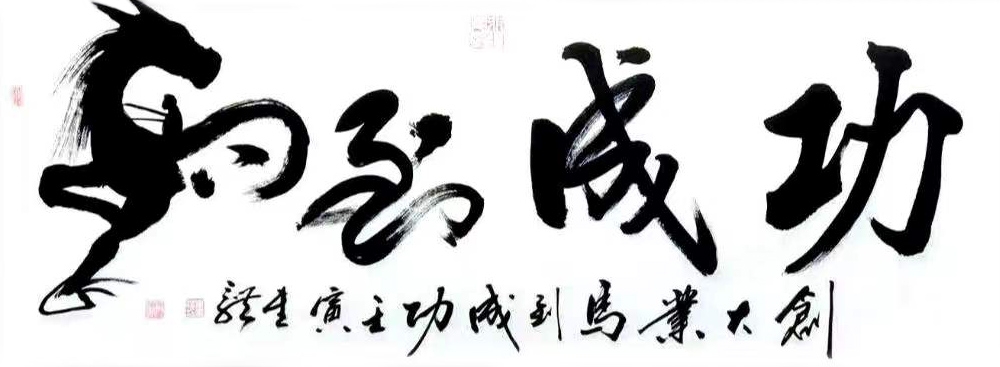 馬到成功
創大業馬到成功壬寅